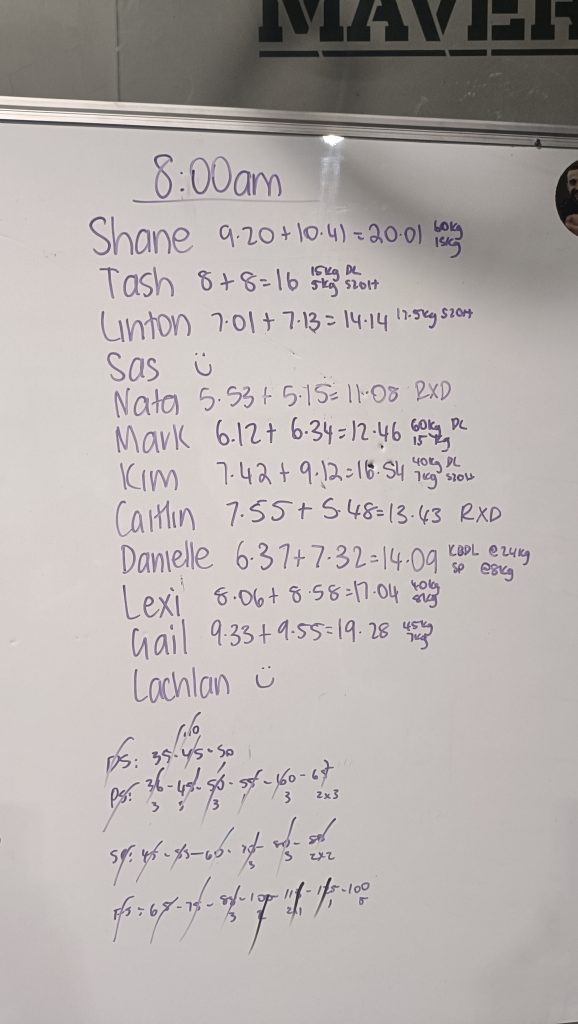 MAVER
8:00am
Shane 9.20 + 10.41 = 20.01 60kg 15kg
Tash 8 + 8 = 16 15kg DL 5kg S2OH
Linton 7.01 + 7.13 = 14.14 17.5kg S2OH
Sas
Nata 5.53 + 5.15 = 11.08 RXD
Mark 6.12 + 6.34 = 12.46 60kg DL 15kg
Kim 7.42 + 9.12 = 16.54 40kg DL 7kg S2OH
Caitlin 7.55 + 5.48 = 13.43 RXD
Danielle 6.37 + 7.32 = 14.09 KBDL @24kg SP @8kg
Lexi 8.06 + 8.58 = 17.04 40kg 8kg
Gail 9.33 + 9.55 = 19.28 45kg 7kg
Lachlan
35 - 45 - 50
PS: 36 - 45 - 50 - 55 - 60
3 3 3 3 2x3
3 3 2x2
3 2 2x1 1 5